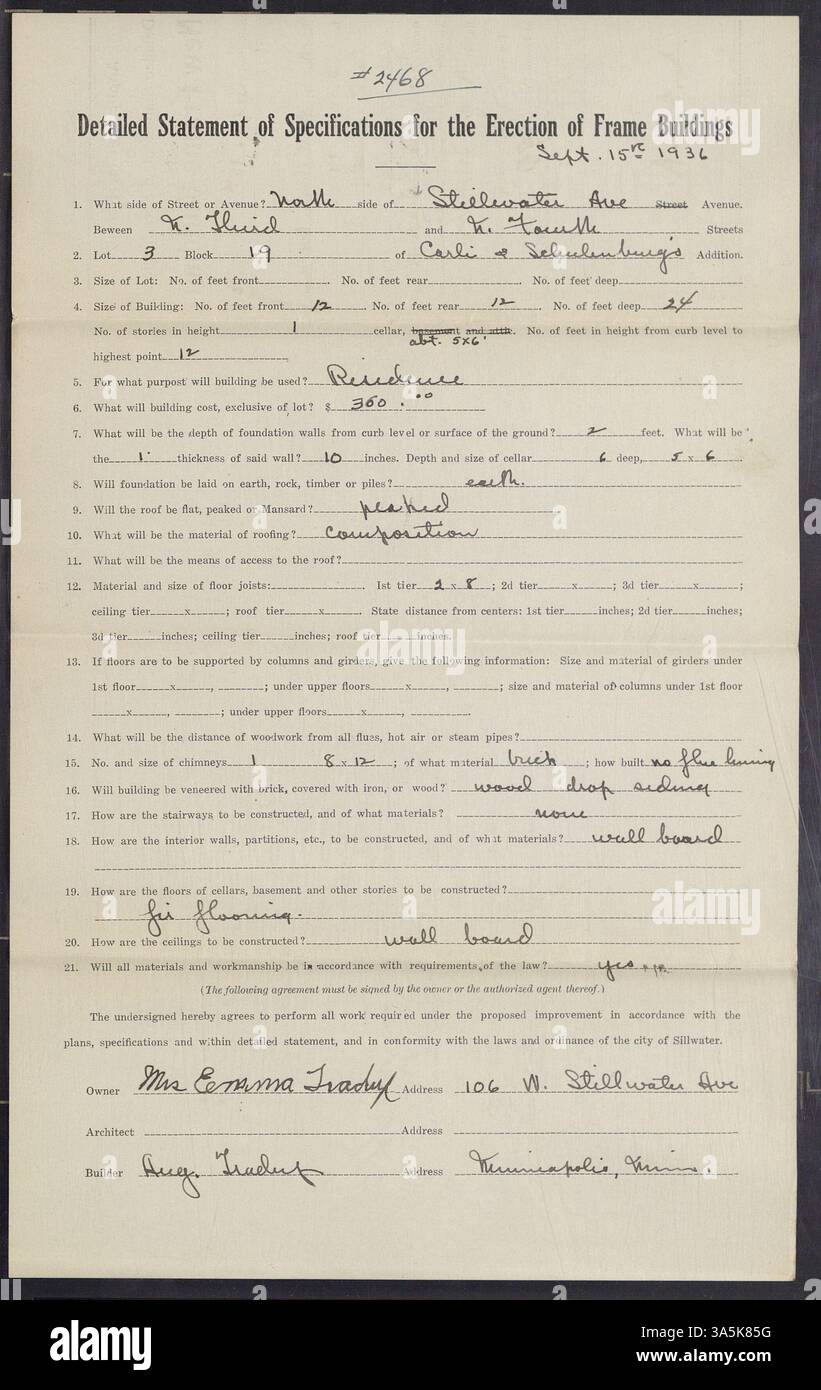 #2468
Detailed Statement of Specifications for the Erection of Frame Buildings
Sept. 15 1936
1. What side of Street or Avenue? North side of Stillwater Ave Street Avenue.
Beween N. Third and N. Fourth Streets
2. Lot 3 Block 19 of Carli & Schulenburg's Addition.
3. Size of Lot: No. of feet front . No. of feet rear . No. of feet deep
4. Size of Building: No. of feet front 12 . No. of feet rear 12 . No. of feet deep 24
No. of stories in height 1 cellar, basement and attic. No. of feet in height from curb level to
abt. 5x6'
highest point 12
5. For what purpost will building be used? Residence
6. What will building cost, exclusive of lot? $ 350.00
7. What will be the depth of foundation walls from curb level or surface of the ground? 2 feet. What will be
the 1' thickness of said wall? 10 inches. Depth and size of cellar 6 deep, 5 x 6 .
8. Will foundation be laid on earth, rock, timber or piles? earth.
9. Will the roof be flat, peaked or Mansard? peaked
10. What will be the material of roofing? composition
11. What will be the means of access to the roof?
12. Material and size of floor joists: . 1st tier 2 x 8 ; 2d tier x ; 3d tier x ;
ceiling tier x ; roof tier x . State distance from centers: 1st tier inches; 2d tier inches;
3d tier inches; ceiling tier inches; roof tier inches.
13. If floors are to be supported by columns and girders, give the following information: Size and material of girders under
1st floor x , ; under upper floors x , ; size and material of columns under 1st floor
x , ; under upper floors x , .
14. What will be the distance of woodwork from all flues, hot air or steam pipes?
15. No. and size of chimneys 1 8 x 12 ; of what material brick ; how built no flue lining
16. Will building be veneered with brick, covered with iron, or wood? wood drop siding
17. How are the stairways to be constructed, and of what materials? none
18. How are the interior walls, partitions, etc., to be constructed, and of what materials? wall board
19. How are the floors of cellars, basement and other stories to be constructed?
fir flooring.
20. How are the ceilings to be constructed? wall board
21. Will all materials and workmanship be in accordance with requirements of the law? yes
(The following agreement must be signed by the owner or the authorized agent thereof.)
The undersigned hereby agrees to perform all work required under the proposed improvement in accordance with the
plans, specifications and within detailed statement, and in conformity with the laws and ordinance of the city of Sillwater.
Owner Mrs Emma Address 106 W. Stillwater Ave
Architect Address
Builder Aug. Address Minneapolis, Minn.
alamy
3A5K85G
www.alamy.com